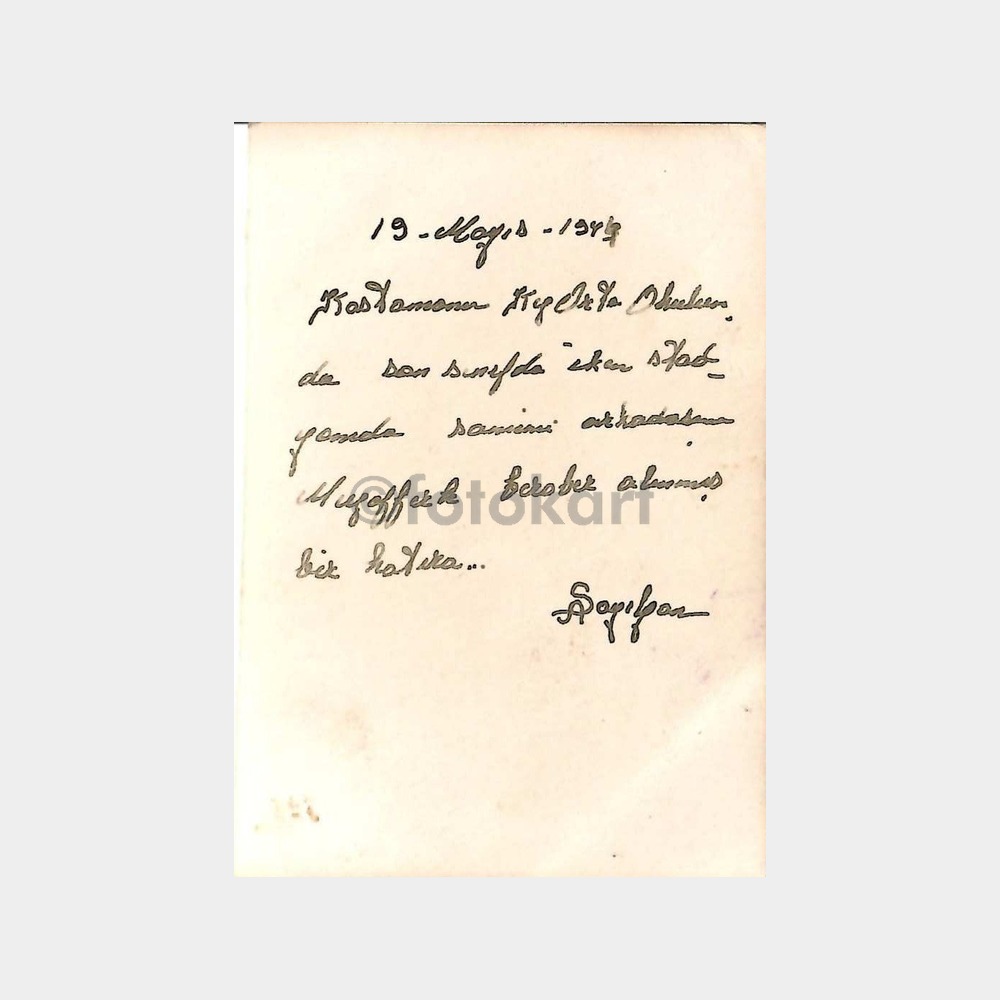 19 - Mayıs - 1944
Kastamonu Kız Orta Okulun
da son sınıfda iken stad-
yomda samimi arkadaşım
Muzafferle beraber alınmış
bir hatıra...
©fotokart